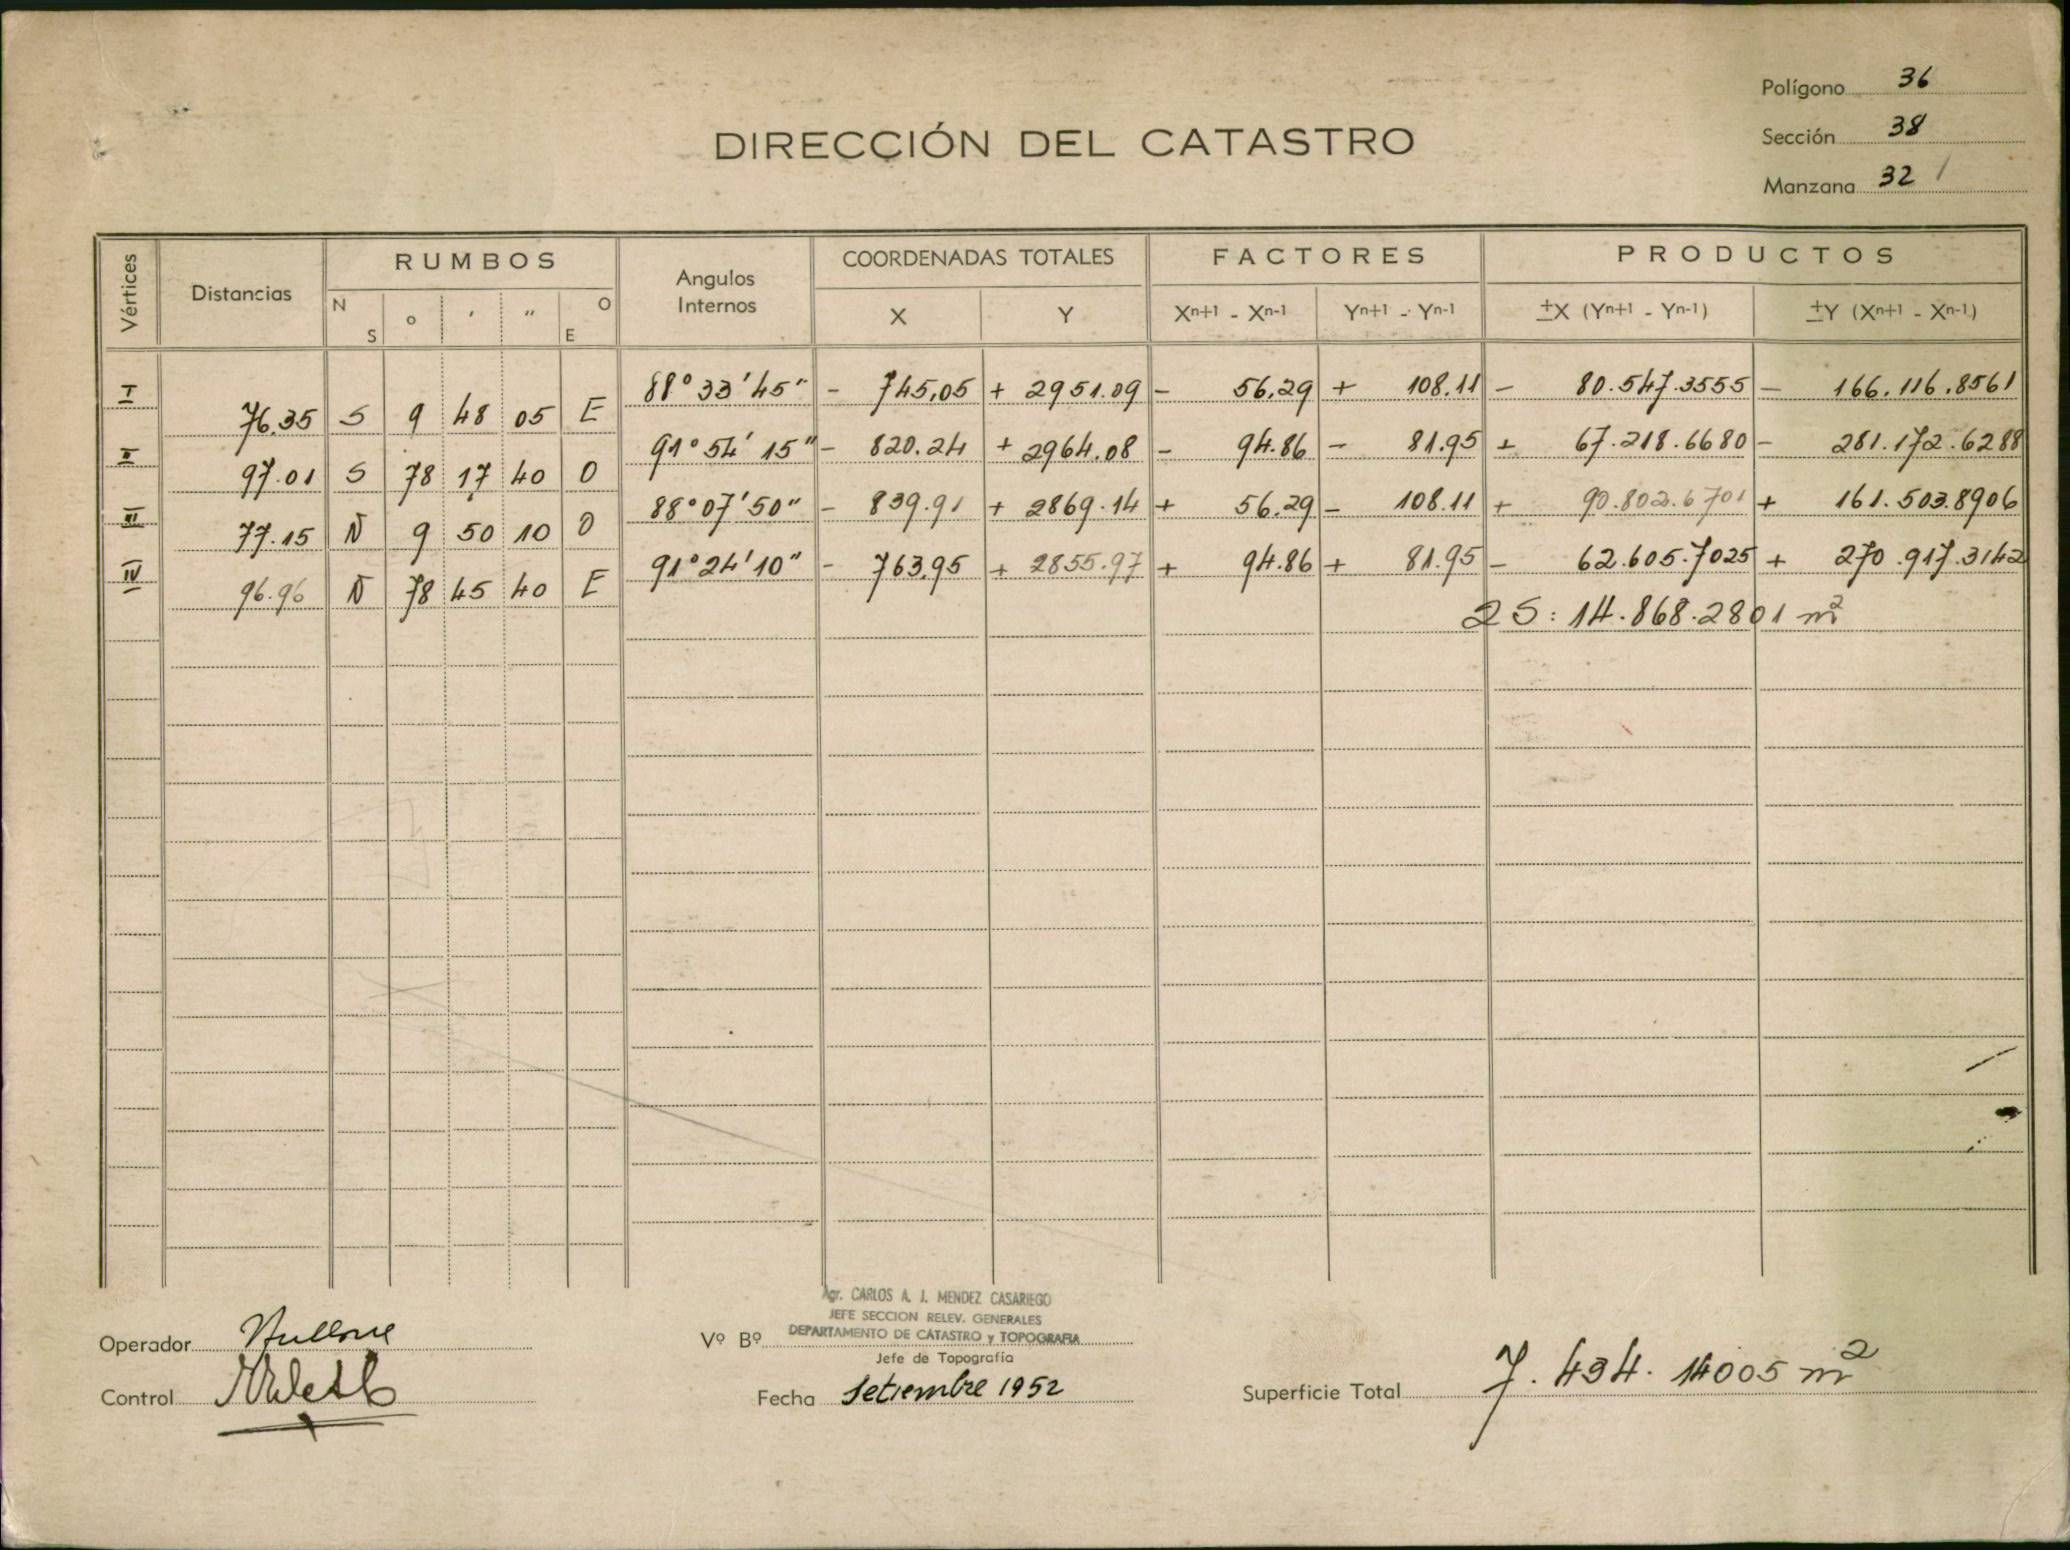 Polígono 36
DIRECCIÓN DEL CATASTRO
Sección 38
Manzana 32
Vértices Distancias RUMBOS Angulos Internos COORDENADAS TOTALES FACTORES PRODUCTOS
N S ° ' " O E X Y Xn+1 - Xn-1 Yn+1 - Yn-1 ±X (Yn+1 - Yn-1) ±Y (Xn+1 - Xn-1)
I 88° 33' 45" - 745,05 + 2951.09 - 56,29 + 108.11 - 80.547.3555 - 166.116.8561
76.35 S 9 48 05 E
II 91° 54' 15" - 820.24 + 2964.08 - 94.86 - 81.95 + 67.218.6680 - 281.172.6288
97.01 S 78 17 40 O
III 88° 07' 50" - 839.91 + 2869.14 + 56.29 - 108.11 + 90.802.6701 + 161.503.8906
77.15 N 9 50 10 O
IV 91° 24' 10" - 763,95 + 2855.97 + 94.86 + 81.95 - 62.605.7025 + 270.917.3142
96.96 N 78 45 40 E
2S: 14.868.2801 m²
Agr. CARLOS A. J. MENDEZ CASARIEGO
JEFE SECCION RELEV. GENERALES
DEPARTAMENTO DE CATASTRO y TOPOGRAFIA
Operador
Vº Bº
Jefe de Topografía
Control
Fecha Setiembre 1952
Superficie Total 7.434.14005 m²